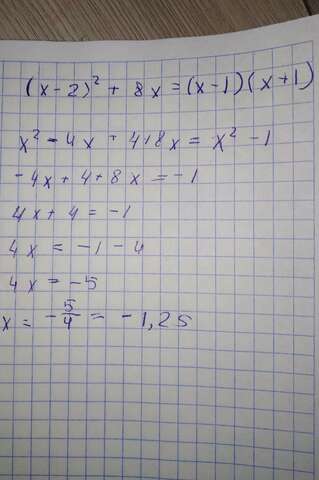 (x-2)² + 8x = (x-1)(x+1)
x² - 4x + 4+8x = x² - 1
-4x + 4 + 8x = -1
4x + 4 = -1
4x = -1 - 4
4x = -5
x = -5/4 = -1,25